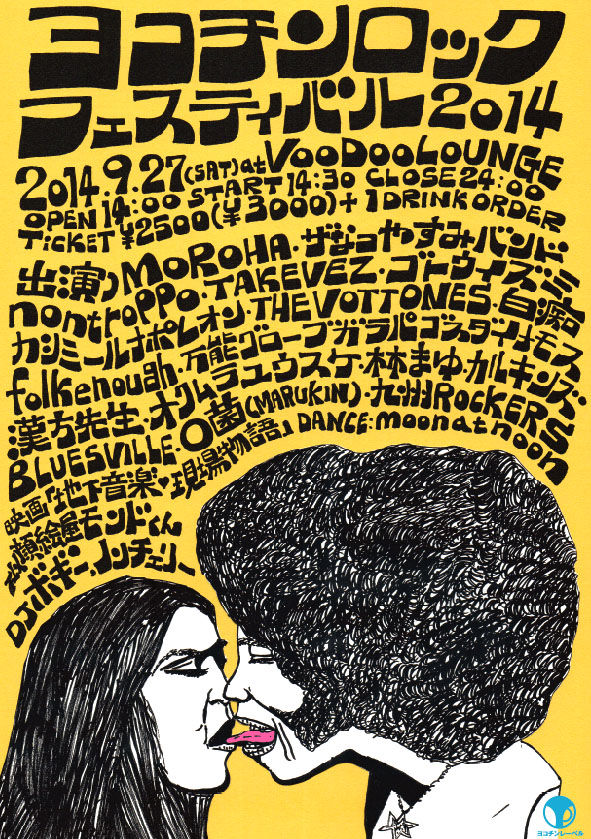 ヨコチンロック
フェスティバル2014
2014.9.27(SAT)at VooDooLOUNGE
OPEN 14:00 START 14:30 CLOSE 24:00
TICKET ¥2500(¥3000)+1DRINK ORDER
出演)MOROHA・ザ・なつやすみバンド
nontroppo・TAKEVEZ・ゴトウイズミ
カシミールナポレオン・THE VOTTONES・白痴
folkenough・万能グローブガラパゴスダイナモス
漢方先生・オクムラユウスケ・林まゆ・カルキンズ
BLUESVILLE・〇菌(MARUKIN)・九州ROCKERS
映画「地下音楽・現場物語」DANCE:moonatnoon
似顔絵屋モンドくん
DJボギー、ノンチェリー
ヨコチンレーベル